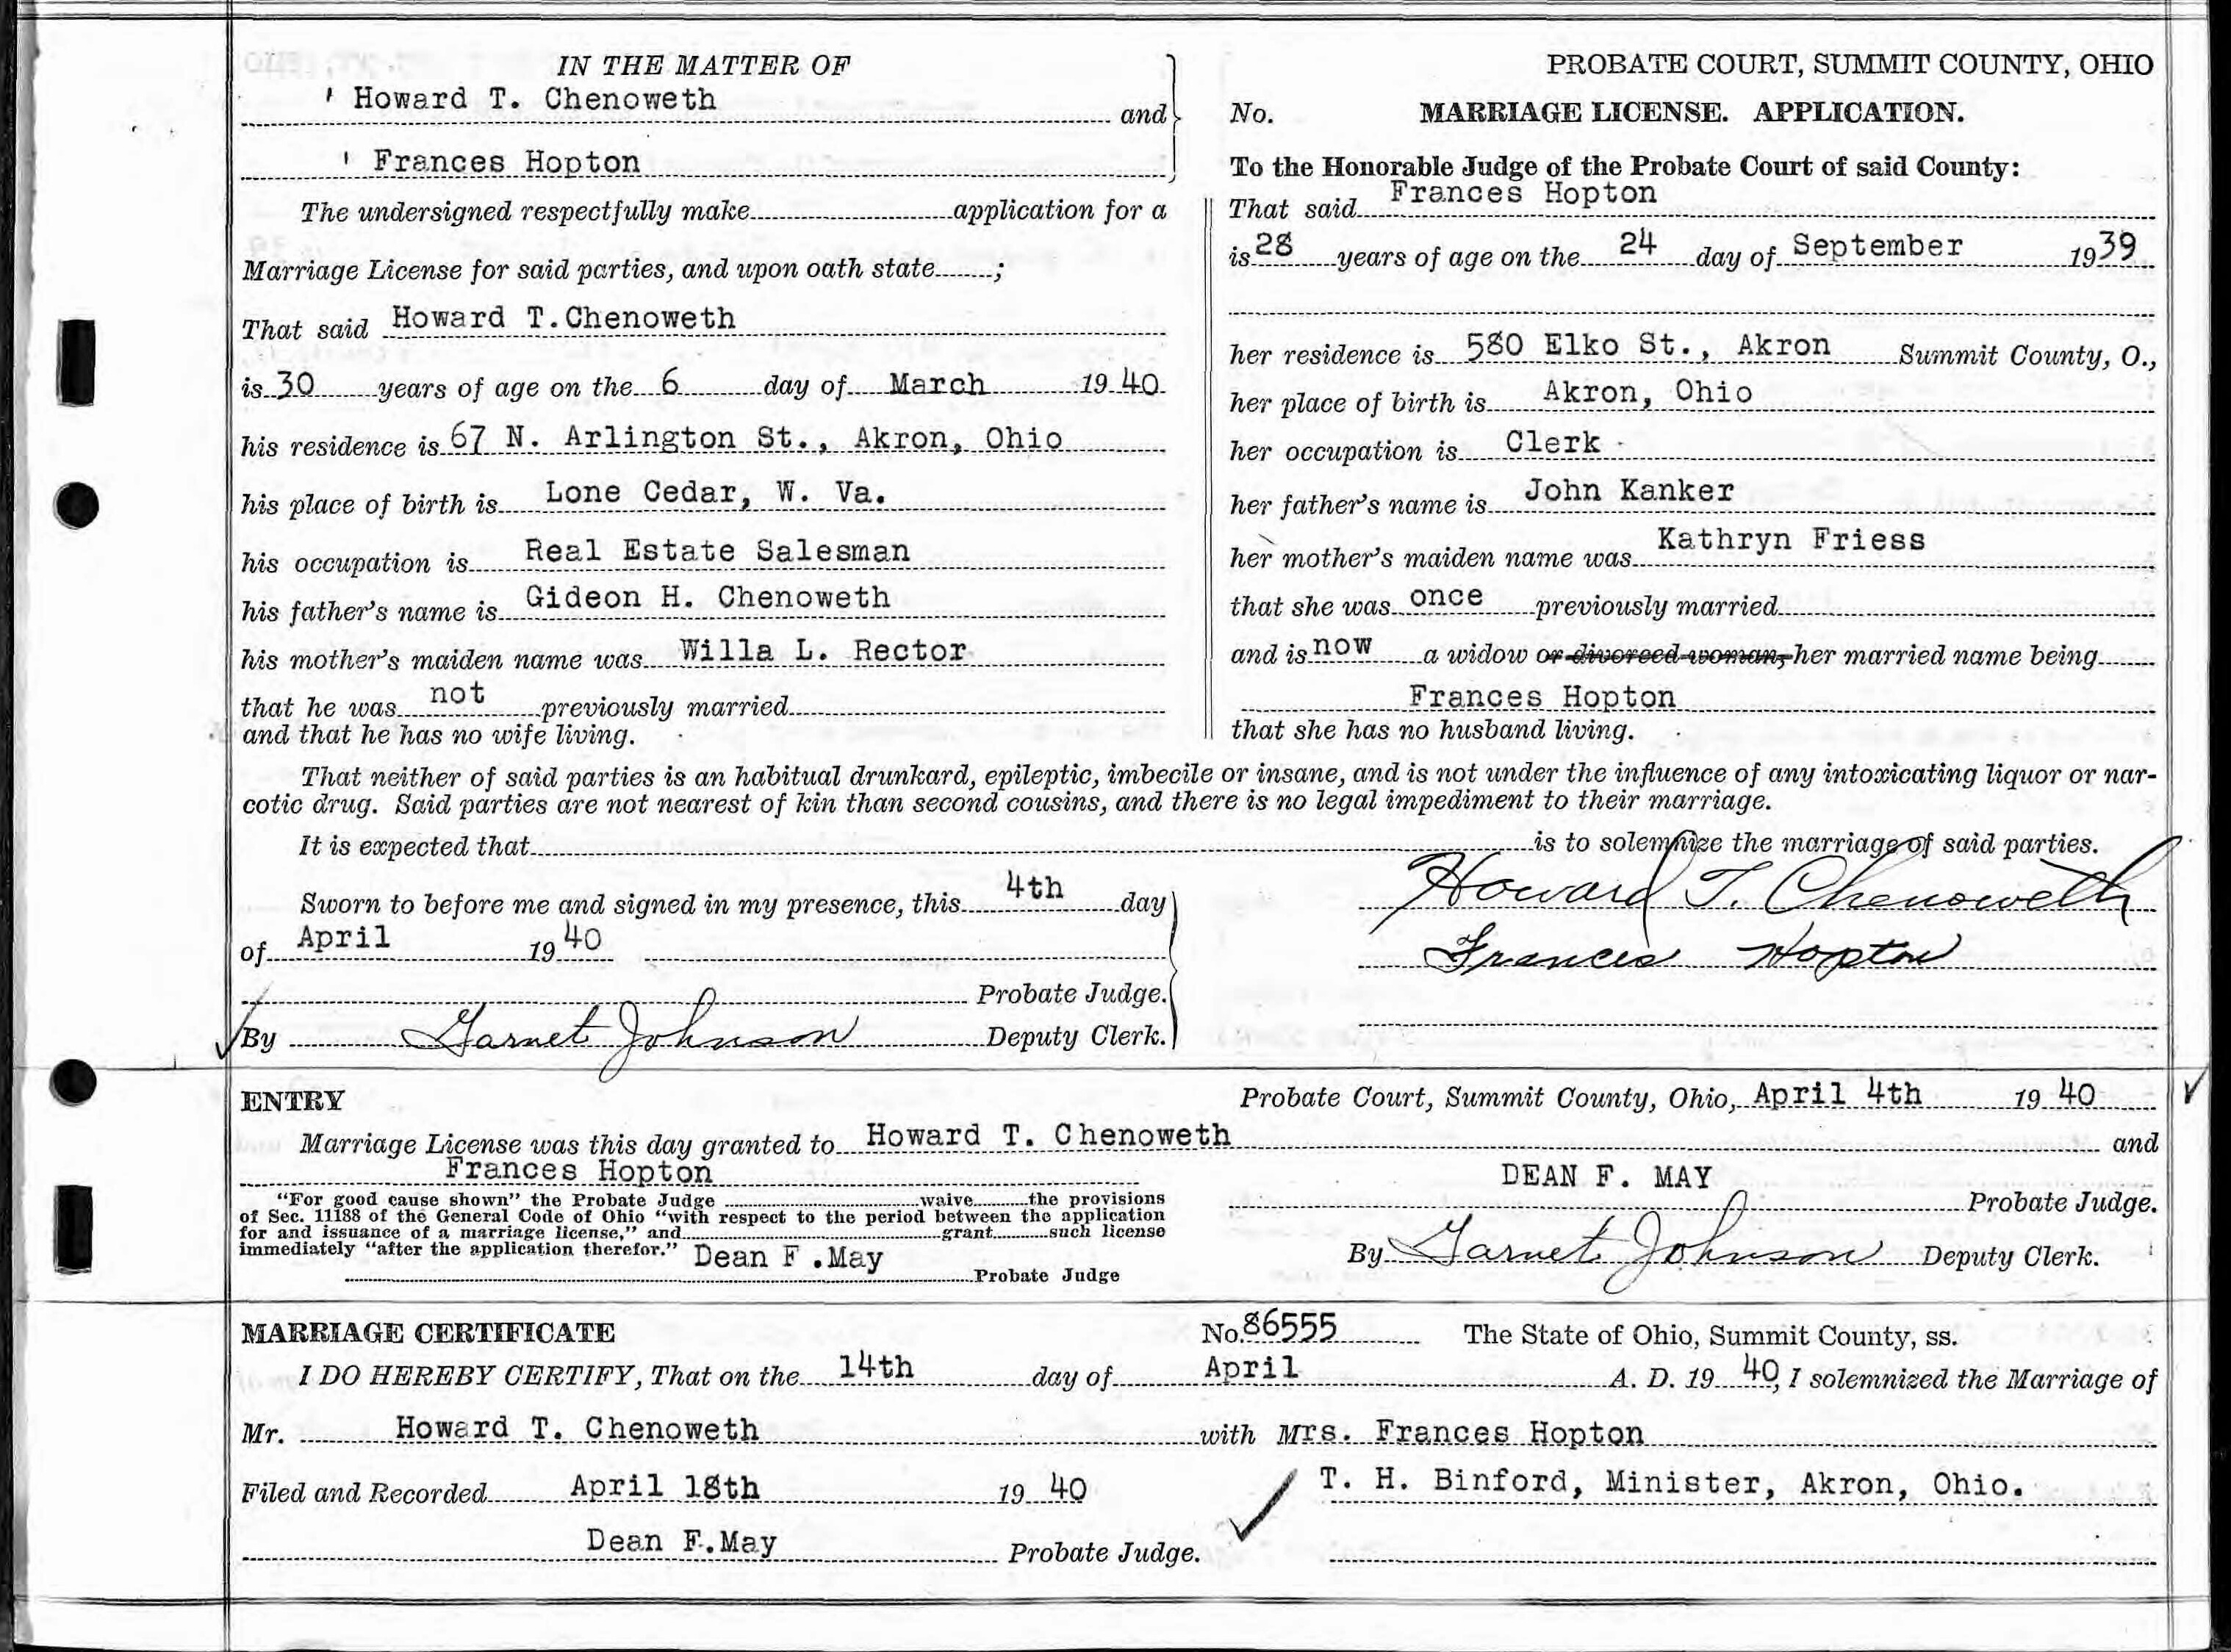 IN THE MATTER OF
Howard T. Chenoweth and
Frances Hopton
The undersigned respectfully make application for a
Marriage License for said parties, and upon oath state ;
That said Howard T.Chenoweth
is 30 years of age on the 6 day of March 19 40
his residence is 67 N. Arlington St., Akron, Ohio
his place of birth is Lone Cedar, W. Va.
his occupation is Real Estate Salesman
his father's name is Gideon H. Chenoweth
his mother's maiden name was Willa L. Rector
that he was not previously married
and that he has no wife living.
PROBATE COURT, SUMMIT COUNTY, OHIO
No. MARRIAGE LICENSE. APPLICATION.
To the Honorable Judge of the Probate Court of said County:
That said Frances Hopton
is 28 years of age on the 24 day of September 1939
her residence is 580 Elko St., Akron Summit County, O.,
her place of birth is Akron, Ohio
her occupation is Clerk
her father's name is John Kanker
her mother's maiden name was Kathryn Friess
that she was once previously married
and is now a widow or divorced woman, her married name being
Frances Hopton
that she has no husband living.
That neither of said parties is an habitual drunkard, epileptic, imbecile or insane, and is not under the influence of any intoxicating liquor or nar-
cotic drug. Said parties are not nearest of kin than second cousins, and there is no legal impediment to their marriage.
It is expected that is to solemnize the marriage of said parties.
Sworn to before me and signed in my presence, this 4th day
of April 19 40
Probate Judge.
By Garnet Johnson Deputy Clerk.
Howard T. Chenoweth
Frances Hopton
ENTRY Probate Court, Summit County, Ohio, April 4th 19 40
Marriage License was this day granted to Howard T. Chenoweth and
Frances Hopton
"For good cause shown" the Probate Judge waive the provisions
of Sec. 11188 of the General Code of Ohio "with respect to the period between the application
for and issuance of a marriage license," and grant such license
immediately "after the application therefor." Dean F .May
Probate Judge
DEAN F. MAY
Probate Judge.
By Garnet Johnson Deputy Clerk.
MARRIAGE CERTIFICATE No. 86555 The State of Ohio, Summit County, ss.
I DO HEREBY CERTIFY, That on the 14th day of April A. D. 19 40, I solemnized the Marriage of
Mr. Howard T. Chenoweth with Mrs. Frances Hopton
Filed and Recorded April 18th 19 40 T. H. Binford, Minister, Akron, Ohio.
Dean F.May Probate Judge.